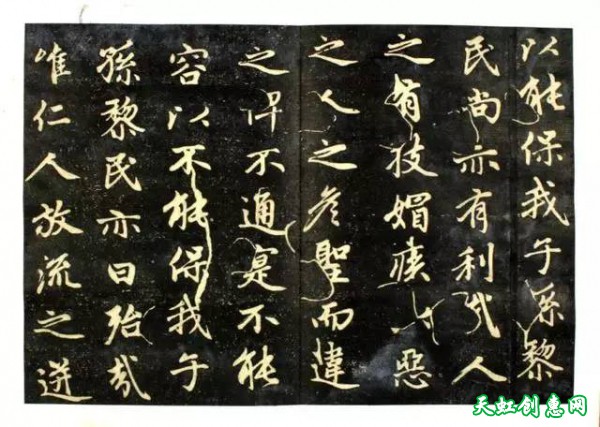 以能保我子孫黎
民尚亦有利哉人
之有技媢疾以惡
之人之彥聖而違
之俾不通寔不能
容以不能保我子
孫黎民亦曰殆哉
唯仁人放流之迸
天虹创惠网